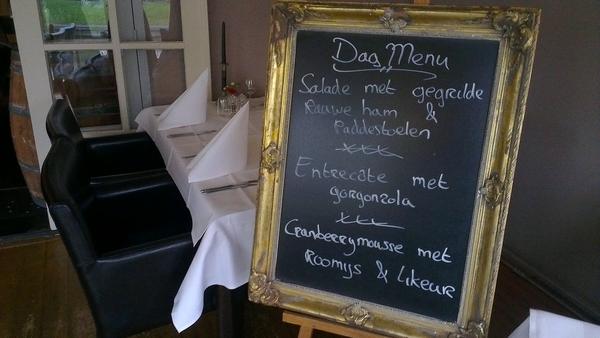 Dag Menu
Salade met gegrilde
Rauwe ham &
Paddestoelen
xxx
Entrecôte met
gorgonzola
xxx
Cranberrymousse met
Roomijs & likeur